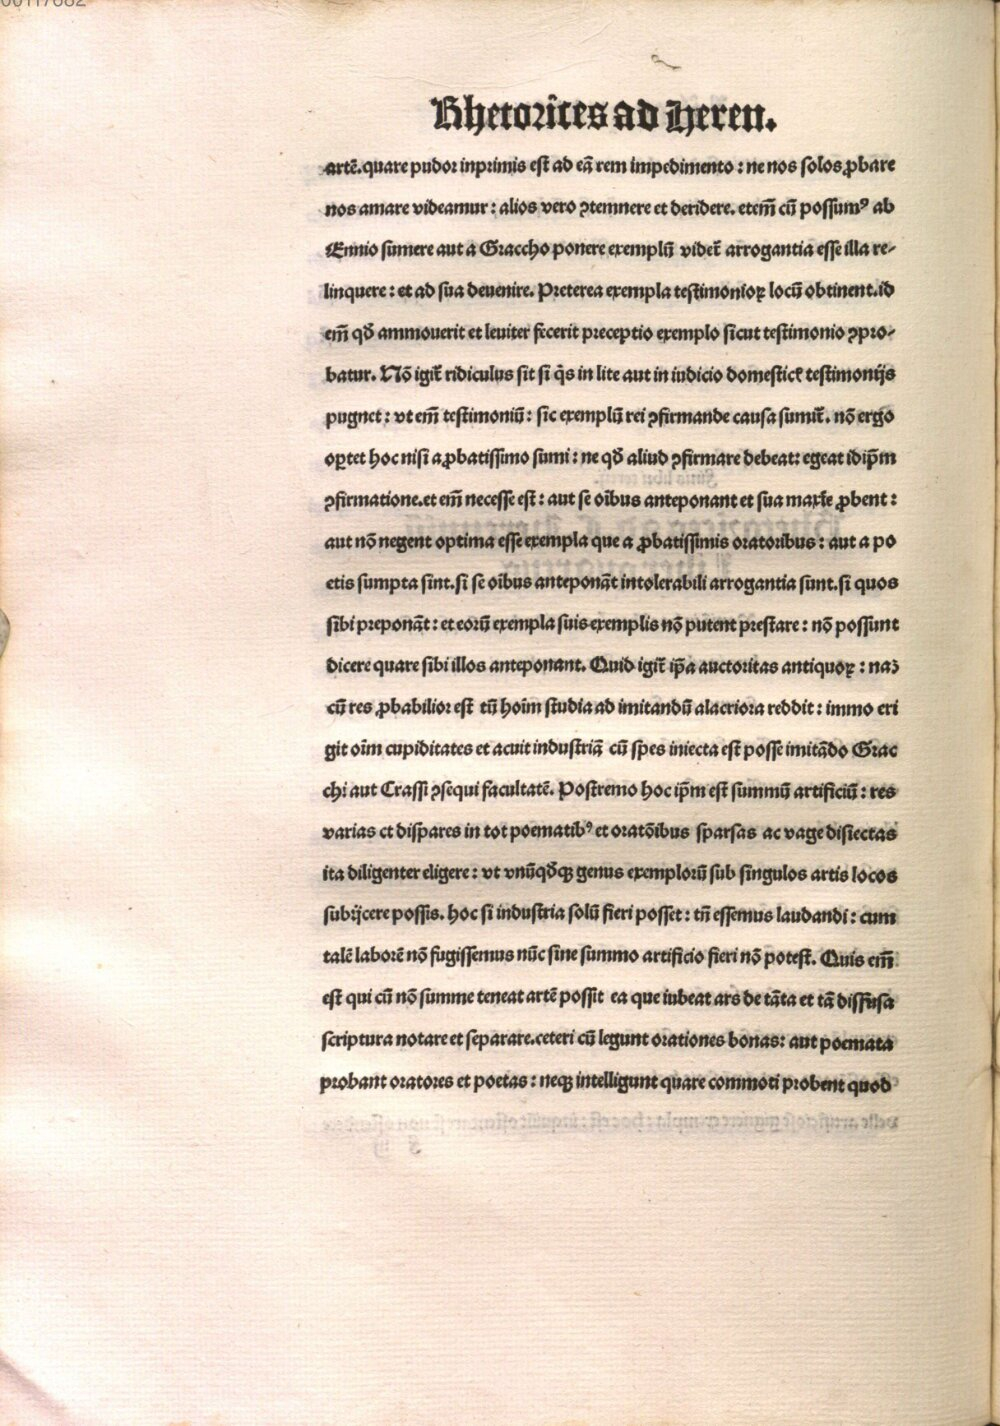 Rhetorices ad Heren.
artē. quare pudor inprimis est ad eā rem impedimento : ne nos solos ꝓbare
nos amare videamur : alios vero ꝯtemnere et deridere. eteī cū possumꝰ ab
Ennio sumere aut a Graccho ponere exemplū videt̄ arrogantia esse illa re⸗
linquere : et ad sua deuenire. Preterea exempla testimonioꝝ locū obtinent. id
em̄ qd̄ ammouerit et leuiter fecerit preceptio exemplo sicut testimonio ꝯpro⸗
batur. Nō igit̄ ridiculus sit si q̄s in lite aut in iudicio domestic testimonijs
pugnet : vt em̄ testimoniū : sic exemplū rei ꝯfirmande causa sumit̄. nō ergo
oꝑtet hoc nisi a ꝓbatissimo sumi : ne qd̄ aliud ꝯfirmare debeat : egeat id ip̄m
ꝯfirmatione. et em̄ necesse est : aut se oībus anteponant et sua maxīe ꝓbent :
aut nō negent optima esse exempla que a ꝓbatissimis oratoribus : aut a po
etis sumpta sint. si se oībus anteponāt intolerabili arrogantia sunt. si quos
sibi preponāt : et eorū exempla suis exemplis nō putent prestare : nō possunt
dicere quare sibi illos anteponant. Quid igit̄ ip̄a auctoritas antiquoꝝ : naꝫ
cū res ꝓbabilior est tū hoīm studia ad imitandū alacriora reddit : immo eri
git oīm cupiditates et acuit industriā cū spes iniecta est posse imitādo Grac
chi aut Crassi ꝯsequi facultatē. Postremo hoc ip̄m est summū artificiū : res
varias et dispares in tot poematibꝰ et oratōibus sparsas ac vage disiectas
ita diligenter eligere : vt vnūqd̄qꝫ genus exemplorū sub singulos artis locos
subijcere possis. hoc si industria solū fieri posset : tn̄ essemus laudandi : cum
talē laborē nō fugissemus nūc sine summo artificio fieri nō potest. Quis em̄
est qui cū nō summe teneat artē possit ea que iubeat ars de tāta et tā diffusa
scriptura notare et separare. ceteri cū legunt orationes bonas : aut poemata
probant oratores et poetas : neqꝫ intelligunt quare commoti probent quod